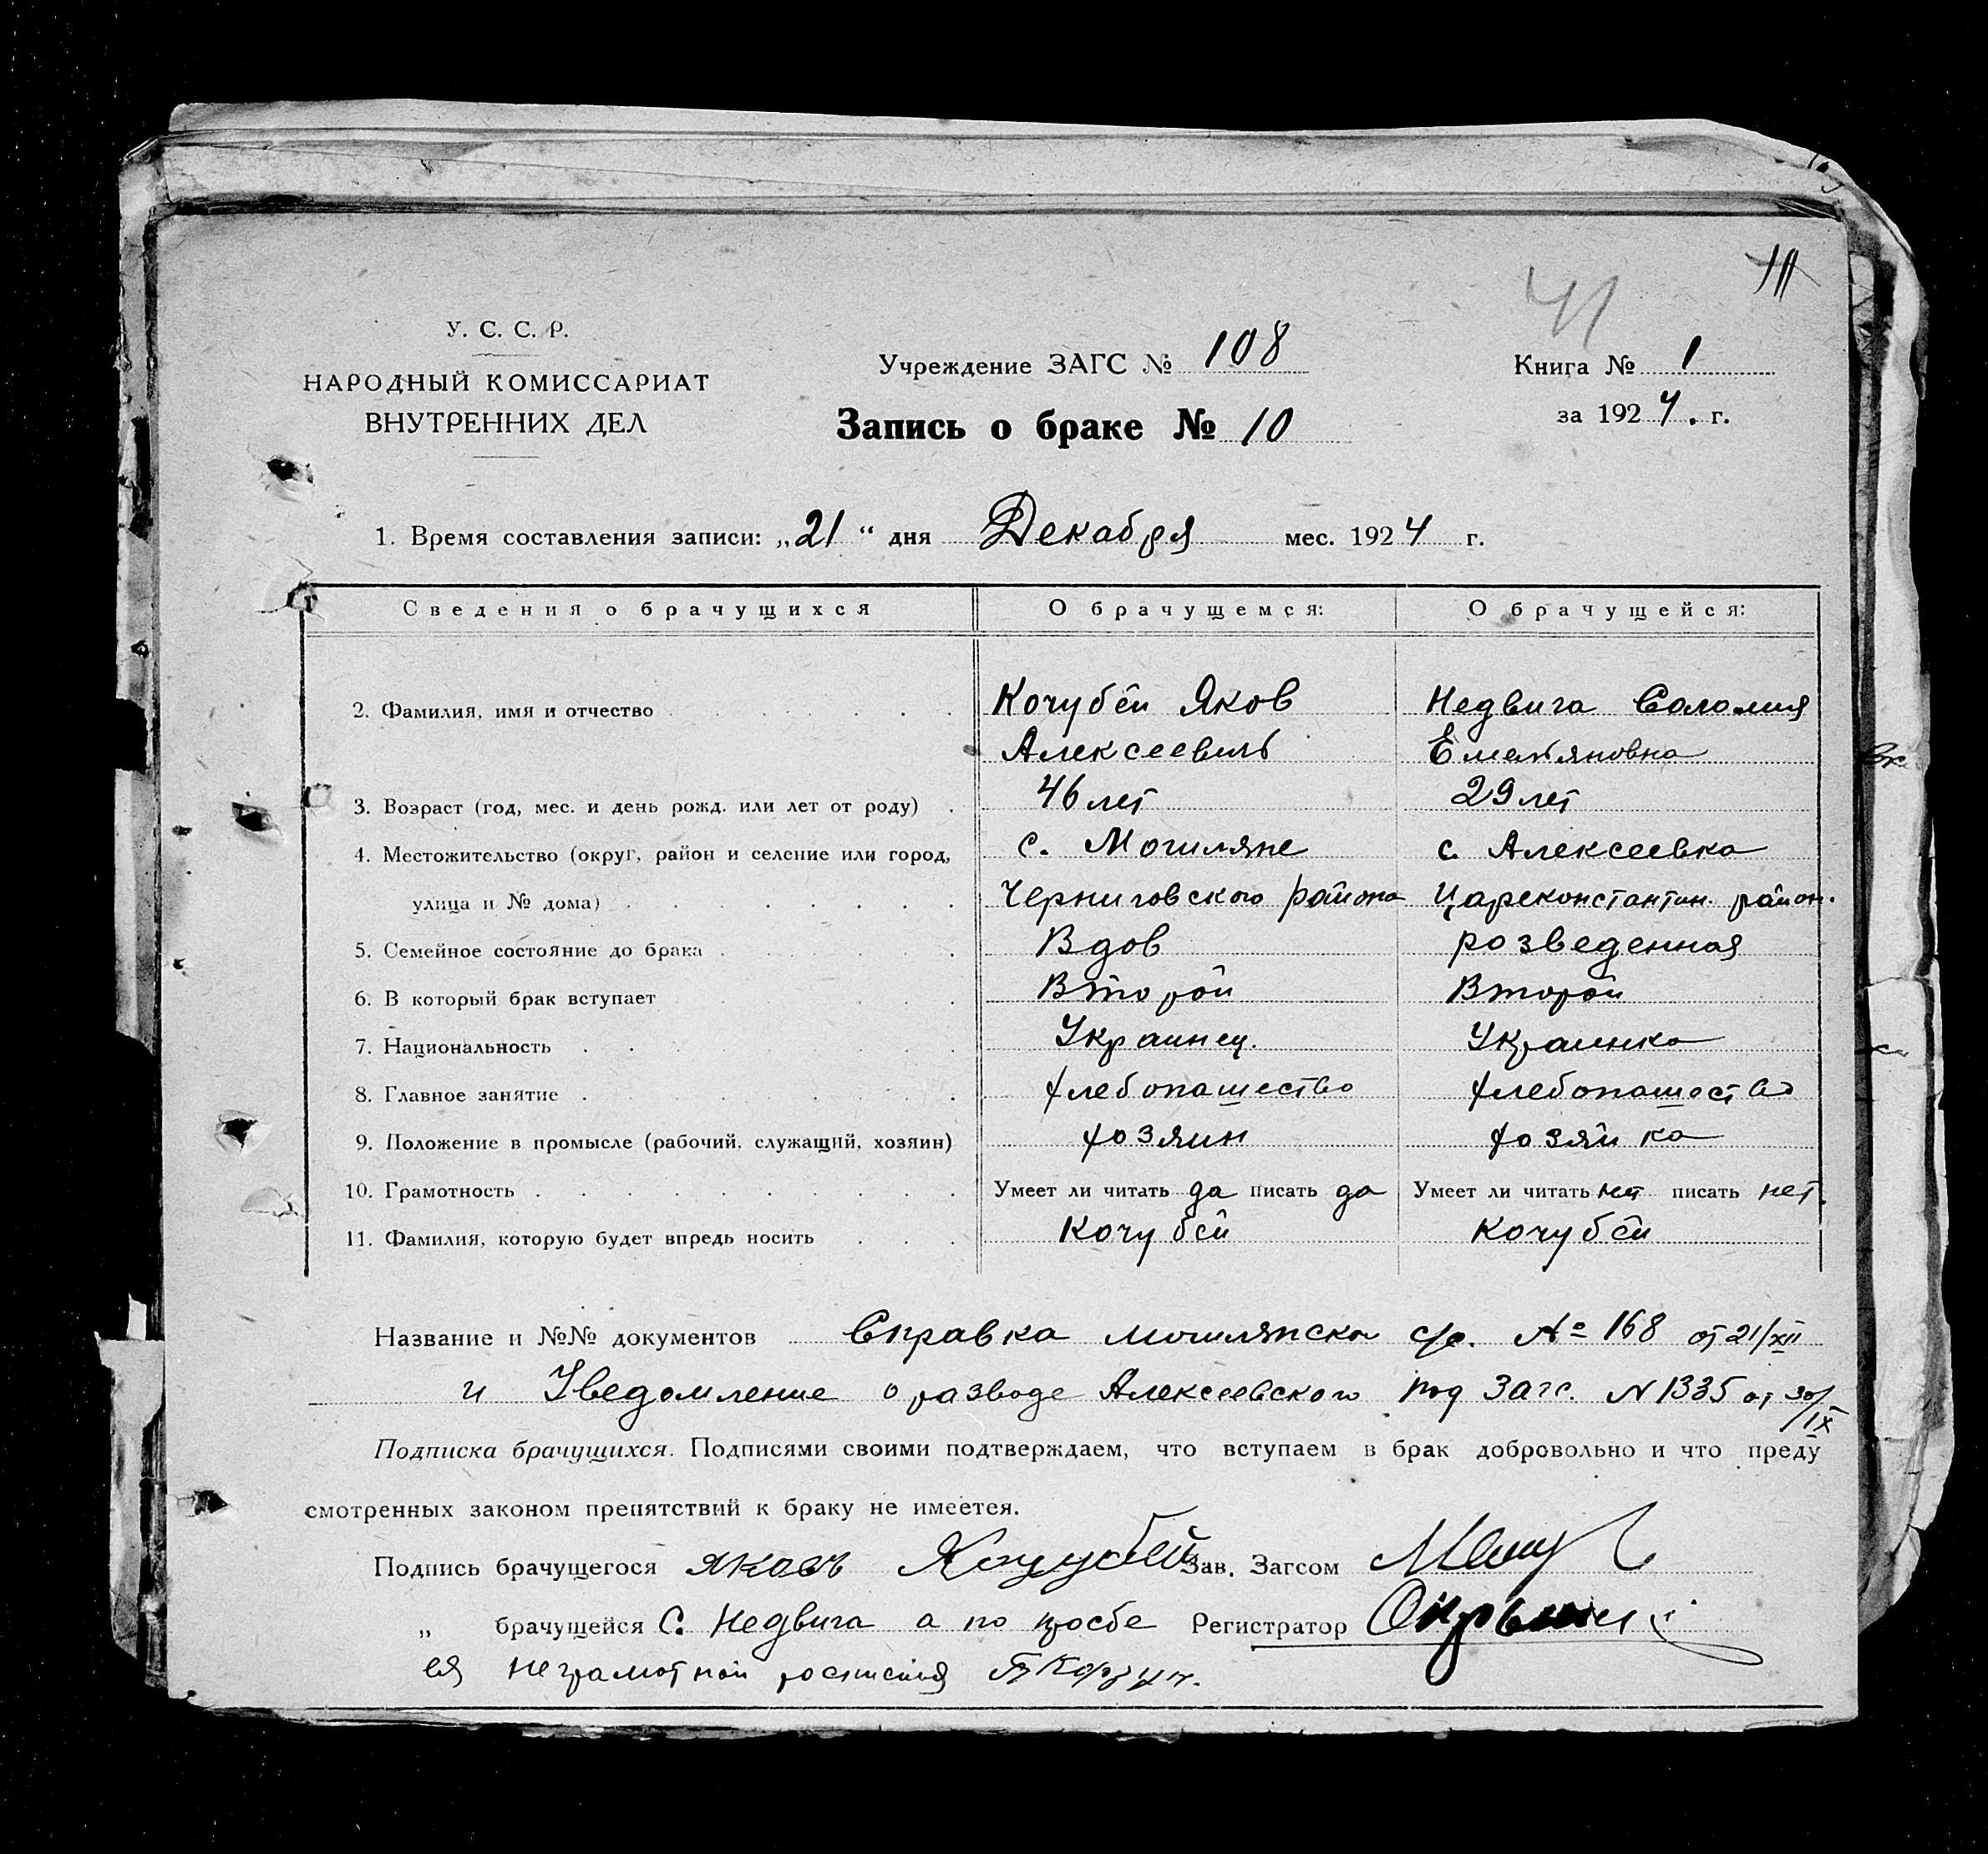 У. С. С. Р.
НАРОДНЫЙ КОМИССАРИАТ
ВНУТРЕННИХ ДЕЛ
41
Учреждение ЗАГС № 108
Книга № 1
за 1924. г.
Запись о браке № 10
1. Время составления записи: „21“ дня Декабря мес. 1924 г.
Сведения о брачущихся О брачущемся: О брачущейся:
2. Фамилия, имя и отчество Кочубей Яков Недвига Соломия
Алексеевич Емельяновна
3. Возраст (год, мес. и день рожд. или лет от роду) 46 лет 29 лет
4. Местожительство (округ, район и селение или город, с. Могиляне с. Алексеевка
улица и № дома) Черниговского района Цареконстантин. район.
5. Семейное состояние до брака Вдов розведенная
6. В который брак вступает Второй Второй
7. Национальность Украинец. Украинка
8. Главное занятие хлебопашество хлебопашество
9. Положение в промысле (рабочий, служащий, хозяин) хозяин хозяйка
10. Грамотность Умеет ли читать да писать да Умеет ли читать нет писать нет.
11. Фамилия, которую будет впредь носить Кочубей Кочубей
Название и №№ документов Справка с/с. № 168 от 21/XII
и Уведомление о разводе Алексеевского под Загс. N 1335 от 30/IX
Подписка брачущихся. Подписями своими подтверждаем, что вступаем в брак добровольно и что преду
смотренных законом препятствий к браку не имеется.
Подпись брачущегося Яковъ Кочубей Зав. Загсом
„ брачущейся С. Недвига а по прозбе Регистратор
ея неграмотной